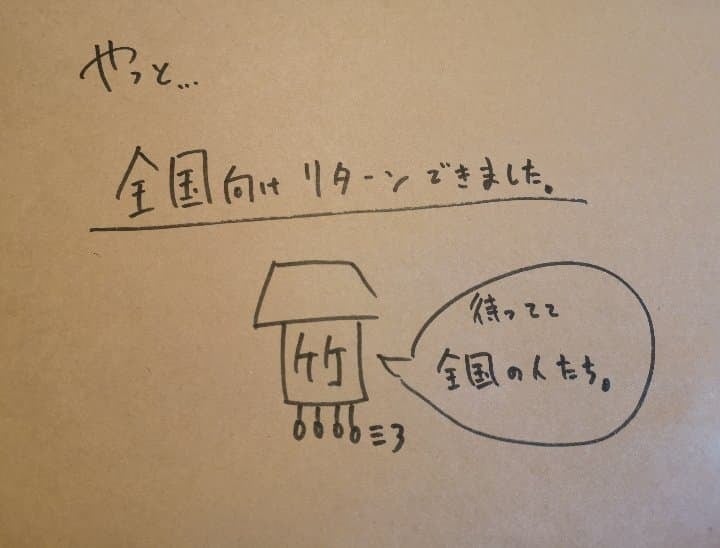 やっと...
全国向けリターンできました。
竹
待ってて
全国の人たち。